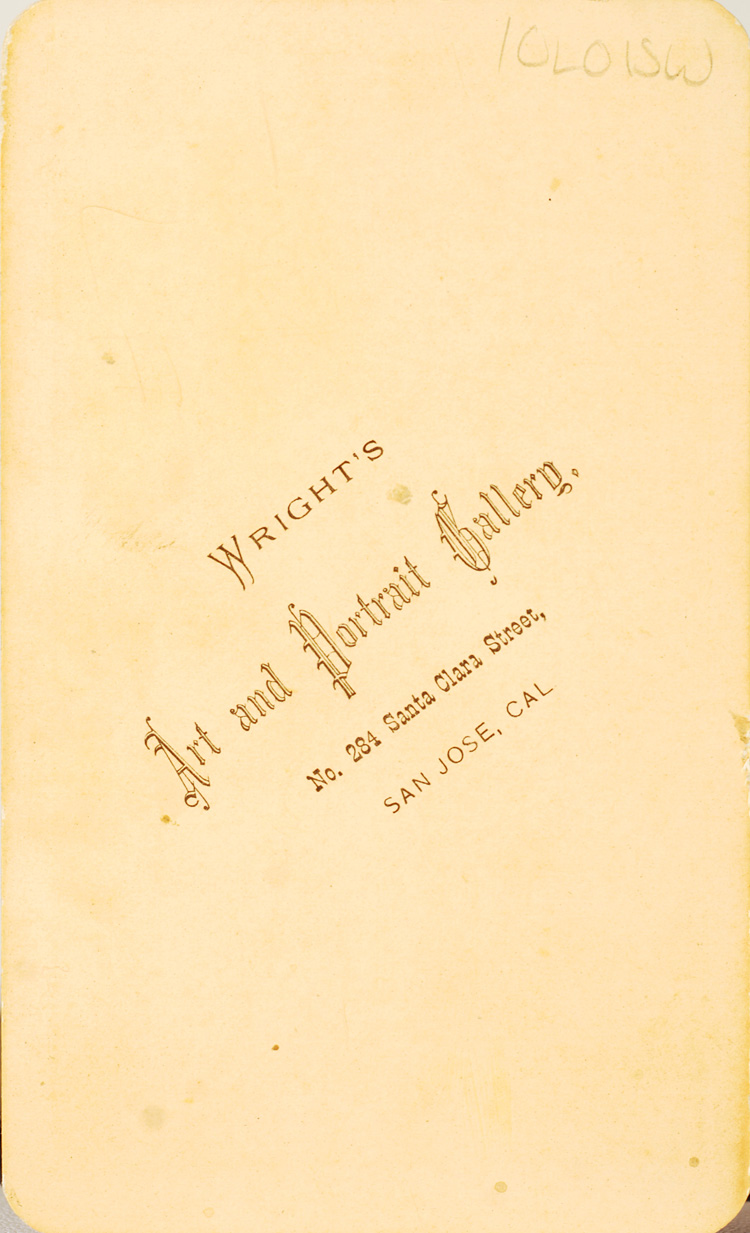 10LO1SW
WRIGHT'S
Art and Portrait Gallery.
No. 284 Santa Clara Street,
SAN JOSE, CAL